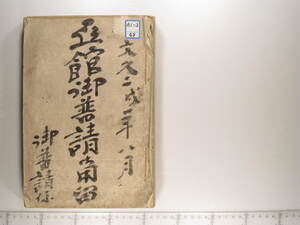 文久二戌年八月
亞館御普請用留
御普請係